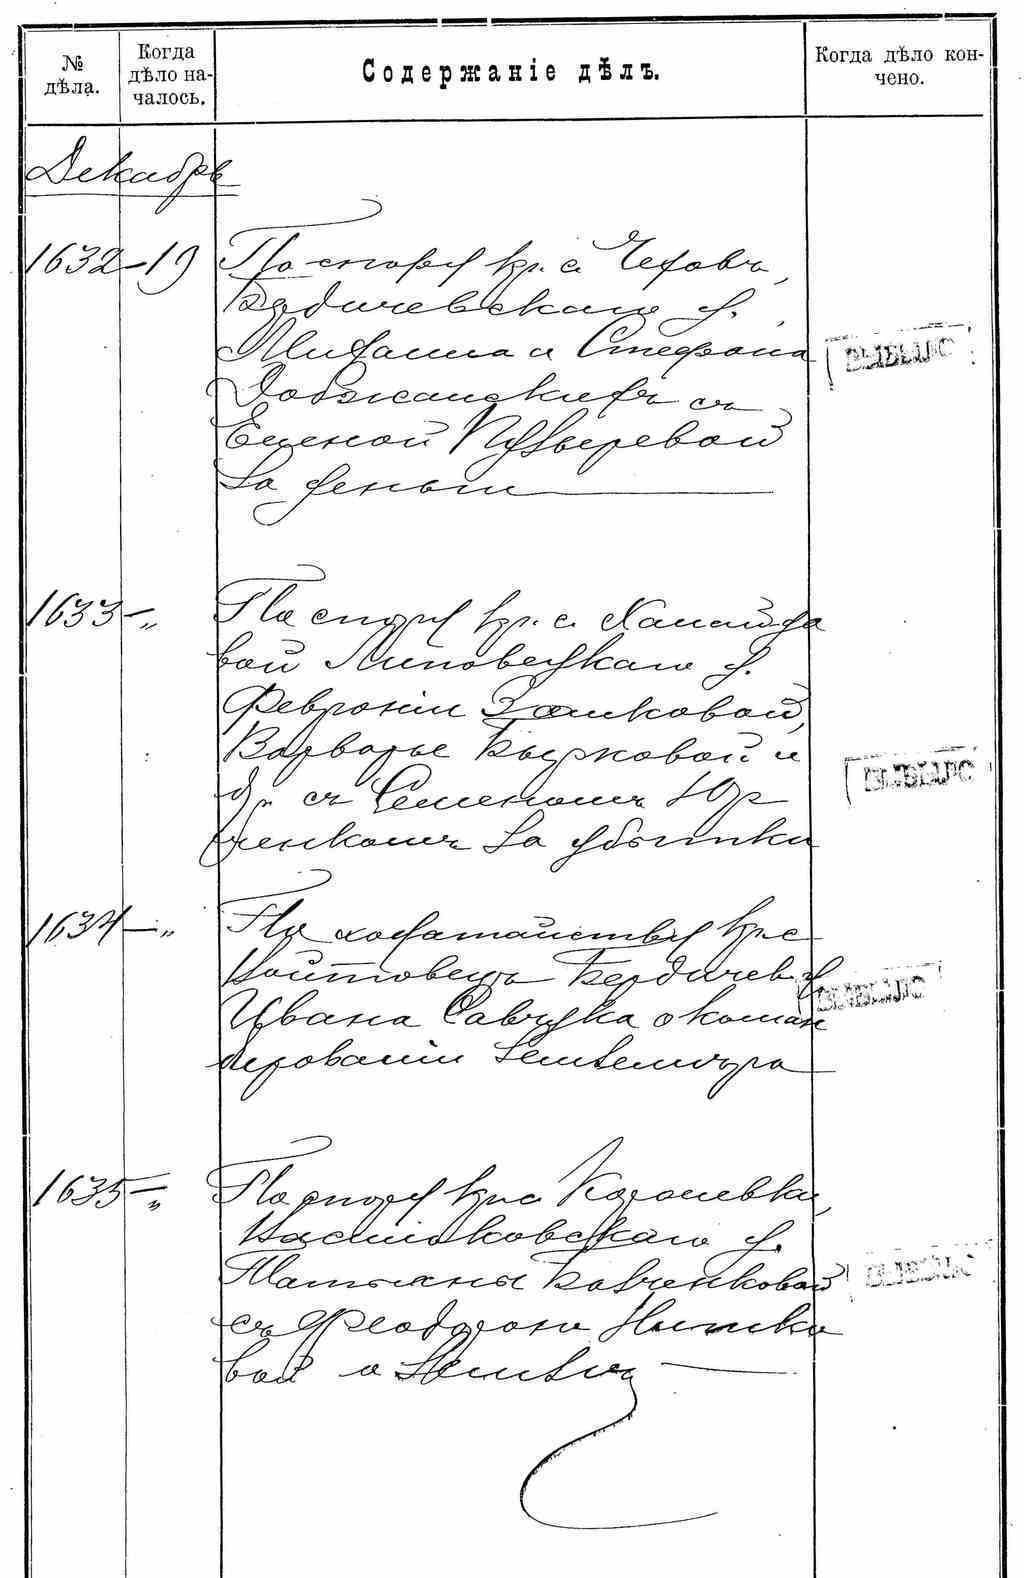 № дѣла.
Когда дѣло началось.
Содержаніе дѣлъ.
Когда дѣло кончено.
Декабрь
1632 - 19 По спору кр. с. Чеховъ,
Бердичевскаго у.
Михаила и Стефана
Добжанскихъ съ
Еленой
за деньги
1633 - „ По спору кр. с.
вой Липовецкаго у.
Февроніи Замковой,
Варвары Бырковой и
др. съ Семеномъ Юр
ченкомъ за убытки
1634 - „ По ходатайству кр. с.
Войтовецъ Бердичев. у.
Ивана Савчука о коман
дированіи землемѣра
1635 - „ По спору кр. с. Королевки,
Васильковскаго у.
Татьяны Бовченковой
съ Феодорою
вой о землѣ
ВЫБЫЛО
ВЫБЫЛО
ВЫБЫЛО
ВЫБЫЛО